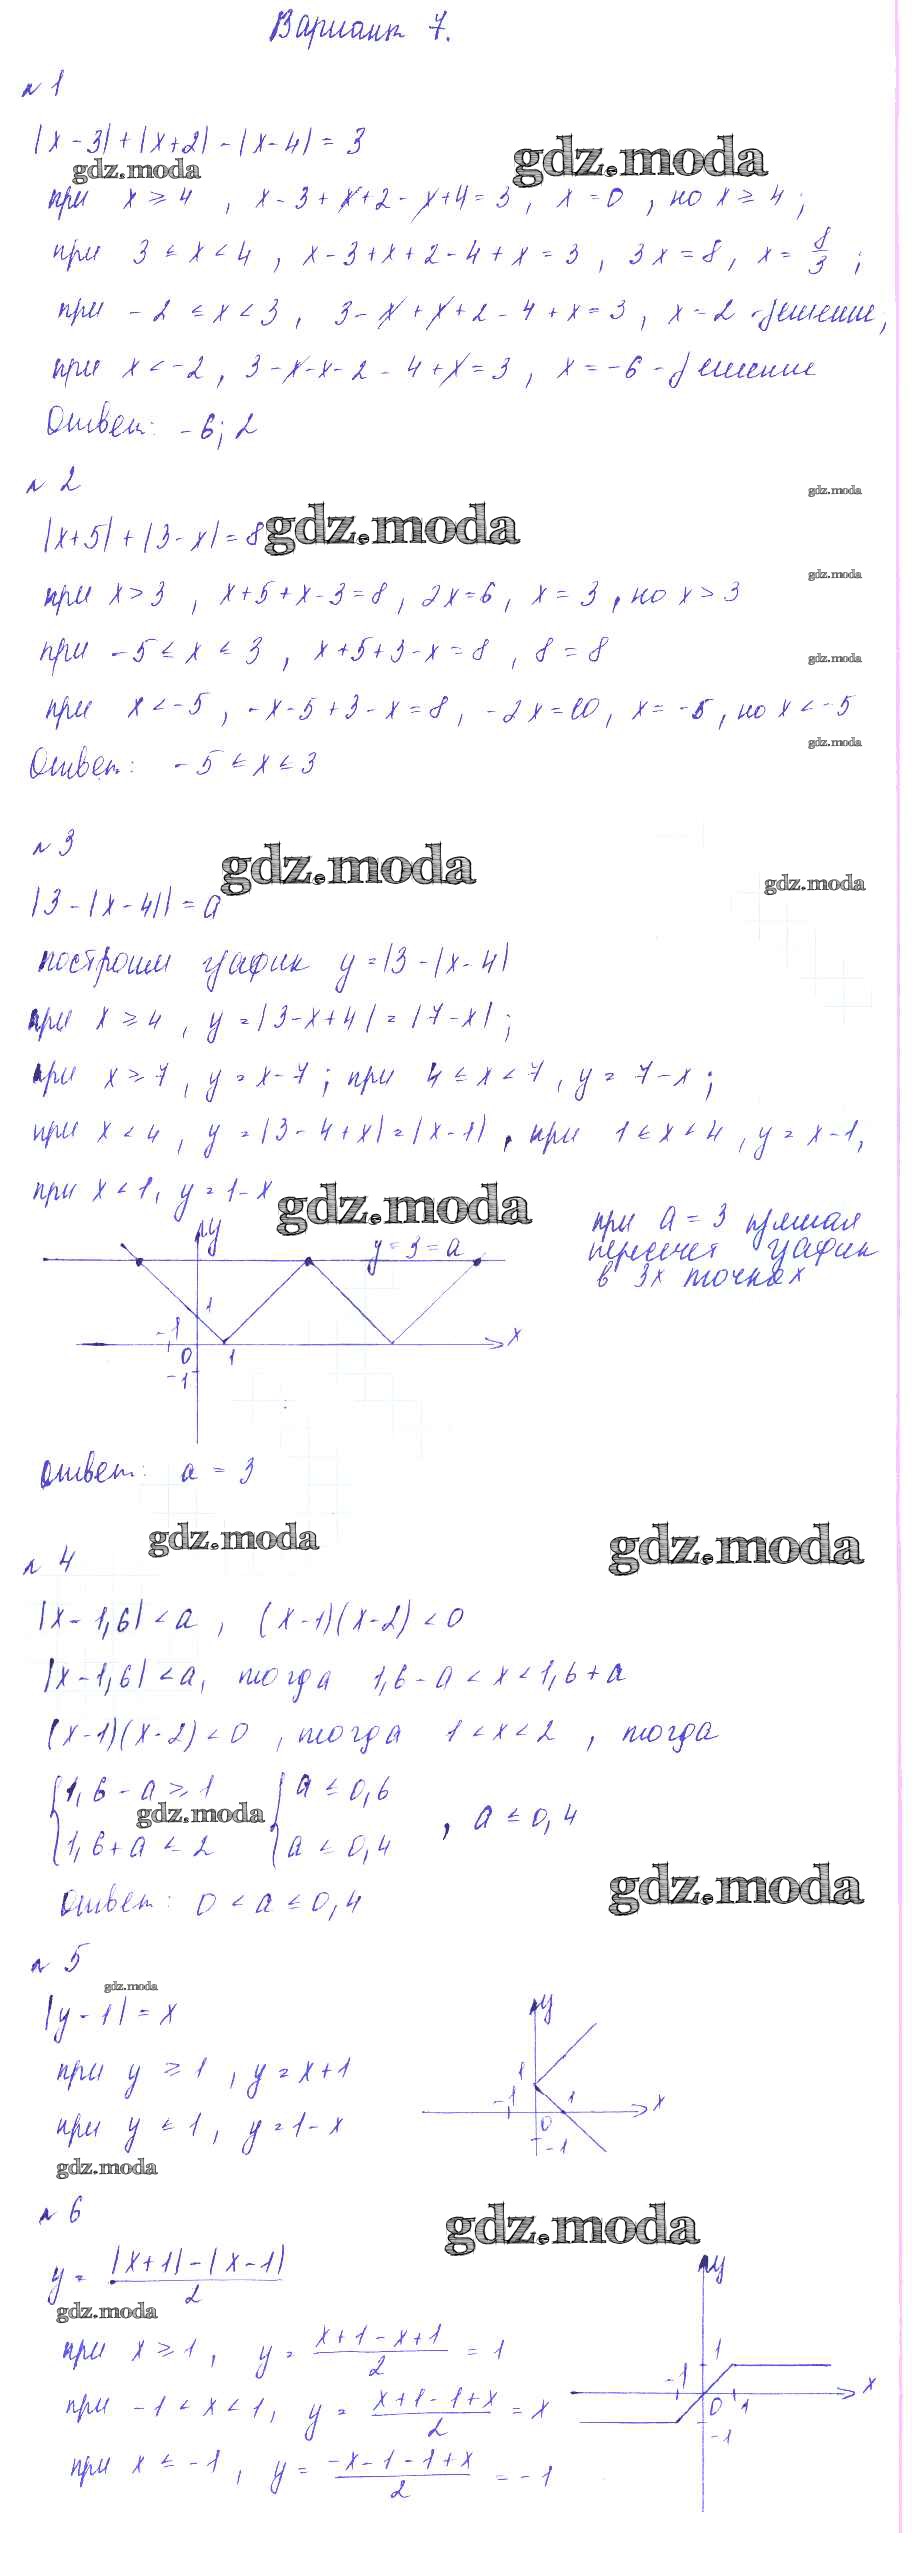 Вариант 7.
№ 1
|x-3|+|x+2|-|x-4|=3
gdz.moda gdz.moda
при x ≥ 4 , x-3+x+2-x+4=3, x=0 , но x ≥ 4 ;
при 3 ≤ x < 4 , x-3+x+2-4+x=3 , 3x=8, x= 8/3 ;
при -2 ≤ x < 3 , 3-x+x+2-4+x=3 , x=2 -решение;
при x < -2 , 3-x-x-2-4+x=3 , x=-6 -решение
Ответ: -6; 2
№ 2
gdz.moda
|x+5|+|3-x|=8 gdz.moda
при x > 3 , x+5+x-3=8 , 2x=6 , x=3 , но x > 3
gdz.moda
при -5 ≤ x ≤ 3 , x+5+3-x=8 , 8=8
gdz.moda
при x < -5 , -x-5+3-x=8 , -2x=10 , x=-5 , но x < -5
gdz.moda
Ответ: -5 ≤ x ≤ 3
№ 3
gdz.moda
gdz.moda
|3-|x-4||=a
построим график y=|3-|x-4|
при x ≥ 4 , y=|3-x+4|=|7-x| ;
при x ≥ 7 , y=x-7 ; при 4 ≤ x < 7 , y=7-x ;
при x < 4 , y=|3-4+x|=|x-1| , при 1 ≤ x < 4 , y=x-1,
при x < 1 , y=1-x
gdz.moda
при a=3 прямая
пересечет график
в 3х точках
y
y=3=a
1
-1
0
1
x
-1
Ответ: a=3
gdz.moda gdz.moda
№ 4
|x-1,6|<a , (x-1)(x-2)<0
|x-1,6|<a, тогда 1,6-a<x<1,6+a
(x-1)(x-2)<0 , тогда 1<x<2 , тогда
{1,6-a ≥ 1 {a ≤ 0,6
gdz.moda , a ≤ 0,4
1,6+a ≤ 2 a ≤ 0,4
gdz.moda
Ответ: 0 < a ≤ 0,4
№ 5
gdz.moda
|y-1|=x
при y ≥ 1 , y=x+1
при y ≤ 1 , y=1-x
y
1
-1
0
1
x
-1
gdz.moda
№ 6
gdz.moda
y= |x+1|-|x-1| / 2
gdz.moda
при x ≥ 1 , y= x+1-x+1 / 2 =1
при -1 < x < 1 , y= x+1-1+x / 2 =x
при x ≤ -1 , y= -x-1-1+x / 2 =-1
y
1
-1
0
1
x
-1